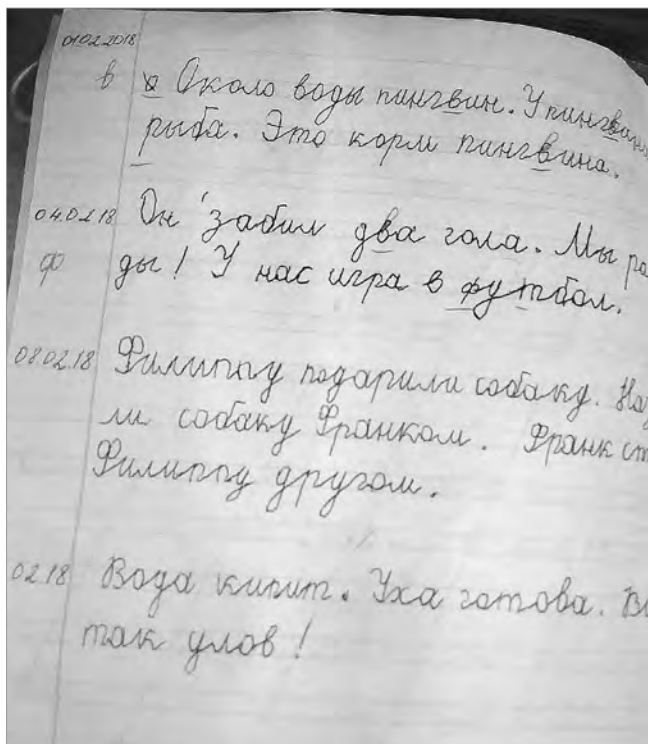 01.02.2018
в Около воды пингвин. У пингвина
рыба. Это корм пингвина.
04.02.18 Он забил два гола. Мы ра
ф ды! У нас игра в футбол.
08.02.18 Филиппу подарили собаку. Наз
ли собаку Франком. Франк ст
Филиппу другом.
02.18 Вода кипит. Уха готова. В
так улов!